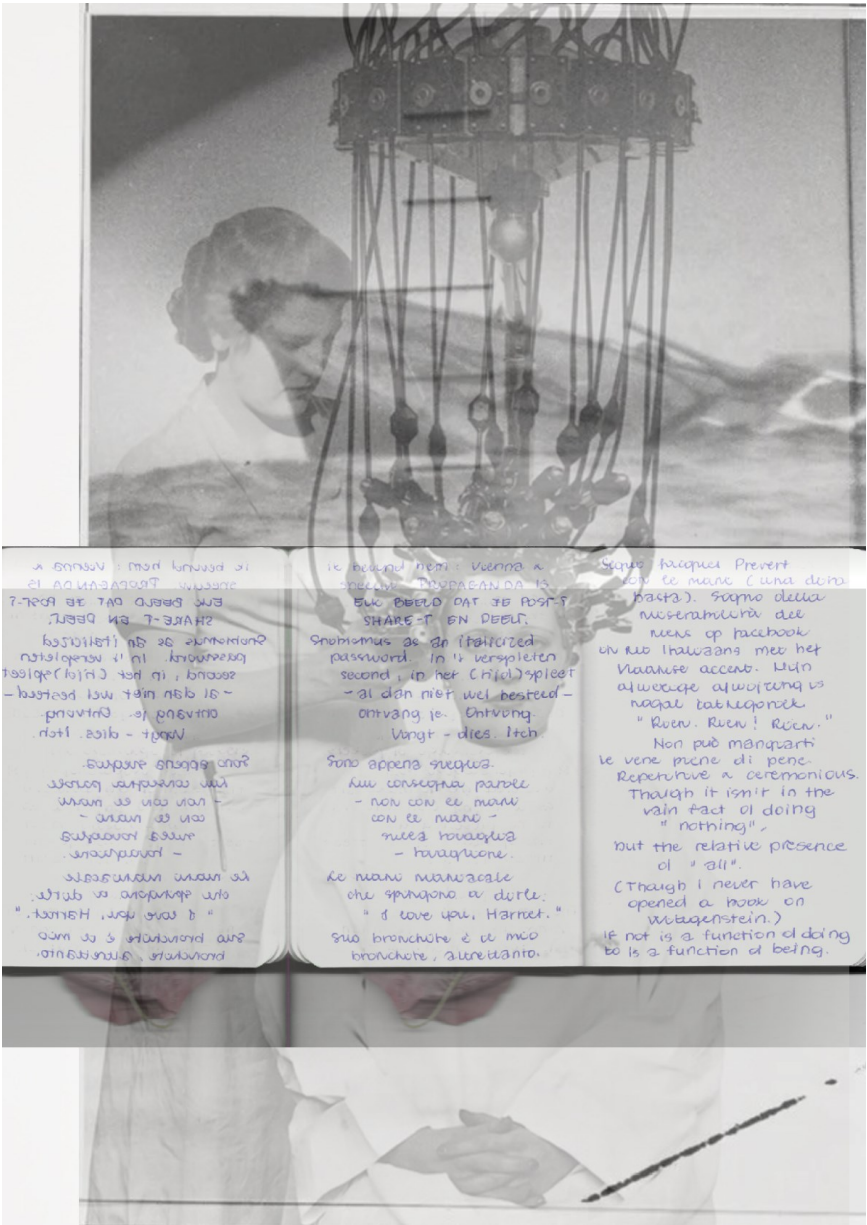 ik bevond hem: Vienna a
PROPAGANDA IS
ELK BEELD DAT JE POST-T
SHARE-T EN DEELT.
as an italicized
password. In 't verspleten
second, in het (rijd)spleet
- al dan niet wel besteed -
ontvang je. Ontvong.
Vongt - dies. Itch
Sono appena
consegna parole
- non con le mani
con le mani -
sulla tovaglia
- tovaglione.
Le mani maniacale
che spingono a dirle:
" I love you, Harriet."
Sua bronchite è il mio
bronchite, altrettanto.
Sogno Jacques Prevert
con le mani (una dona
basta). Sogno della
miserabilità del
mens op facebook
un Italiaans met het
Vlaamse accent. Mijn
alwijzing is
nogal kathegoriek
" Rien. Rien! Rien."
Non può mancarti
le vene piene di pene.
Repetitive a ceremonious.
Though it isn't in the
vain fact of doing
" nothing",
but the relative presence
of " all".
(Though I never have
opened a book on
Wittgenstein.)
If not is a function of doing
to is a function of being.